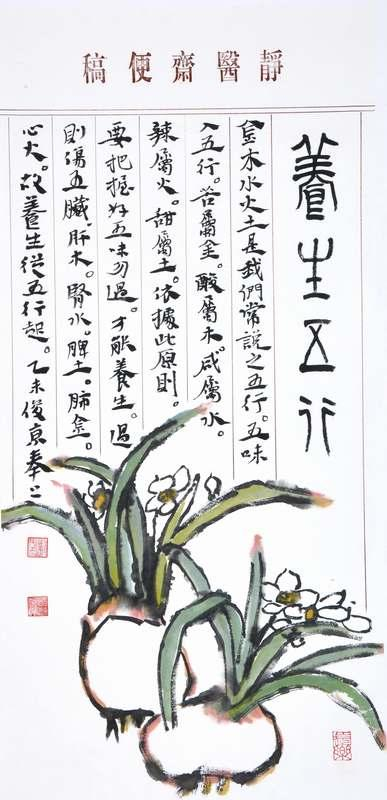 靜醫齋便稿
養生五行
金木水火土是我們常說之五行。五味
入五行。苦屬金。酸屬木。咸屬水。
辣屬火。甜屬土。依據此原則。
要把握好五味勿過。才能養生。過
則傷五臟。肝木。腎水。脾土。肺金。
心火。故養生從五行起。乙未俊京奉之